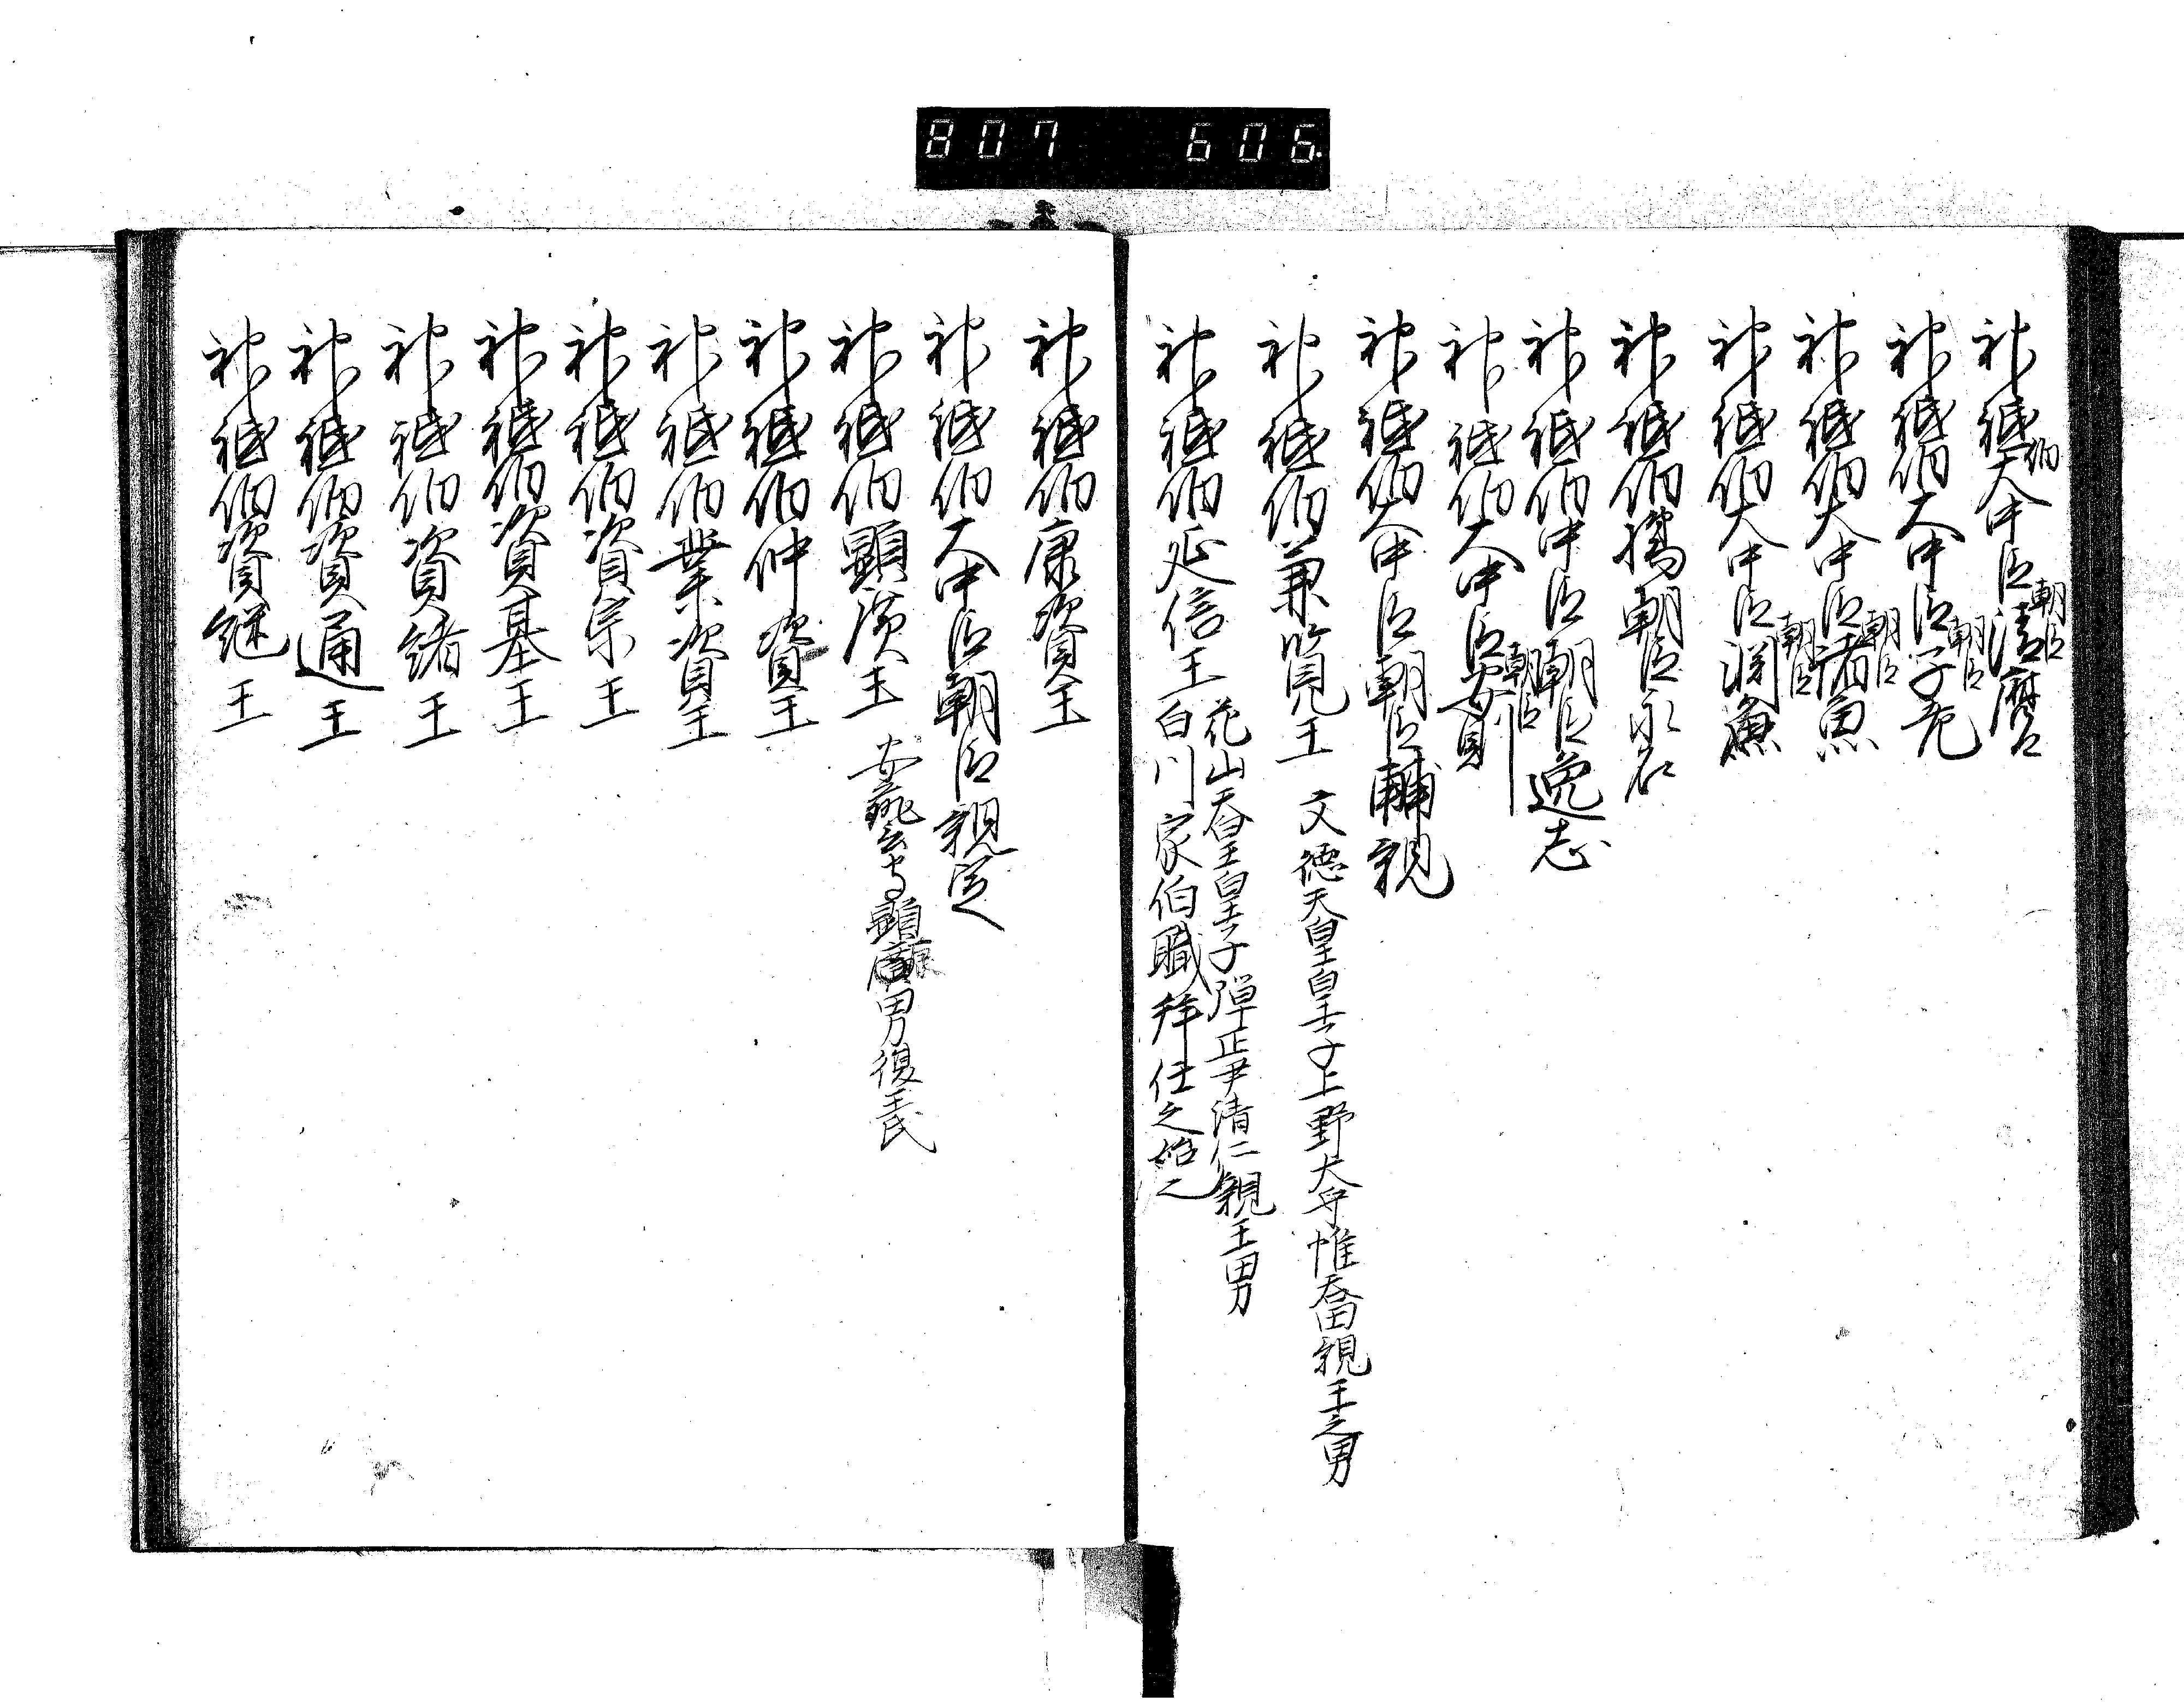 807 606.
神祇伯大中臣朝臣清麿
神祇伯大中臣朝臣子老
神祇伯大中臣朝臣諸魚
神祇伯大中臣朝臣渕魚
神祇伯橘朝臣永名
神祇伯中臣朝臣逸志
神祇伯大中臣朝臣安則
神祇伯大中臣朝臣輔親
神祇伯兼覧王 文徳天皇皇子上野大守惟喬親王之男
神祇伯延信王 花山天皇皇子弾正尹清仁親王男
白川家伯職拜任之始也
神祇伯康資王
神祇伯大中臣朝臣親定
神祇伯顕廣王 安藝守顕康男復王氏
神祇伯仲資王
神祇伯業資王
神祇伯資宗王
神祇伯資基王
神祇伯資緒王
神祇伯資通王
神祇伯資継王